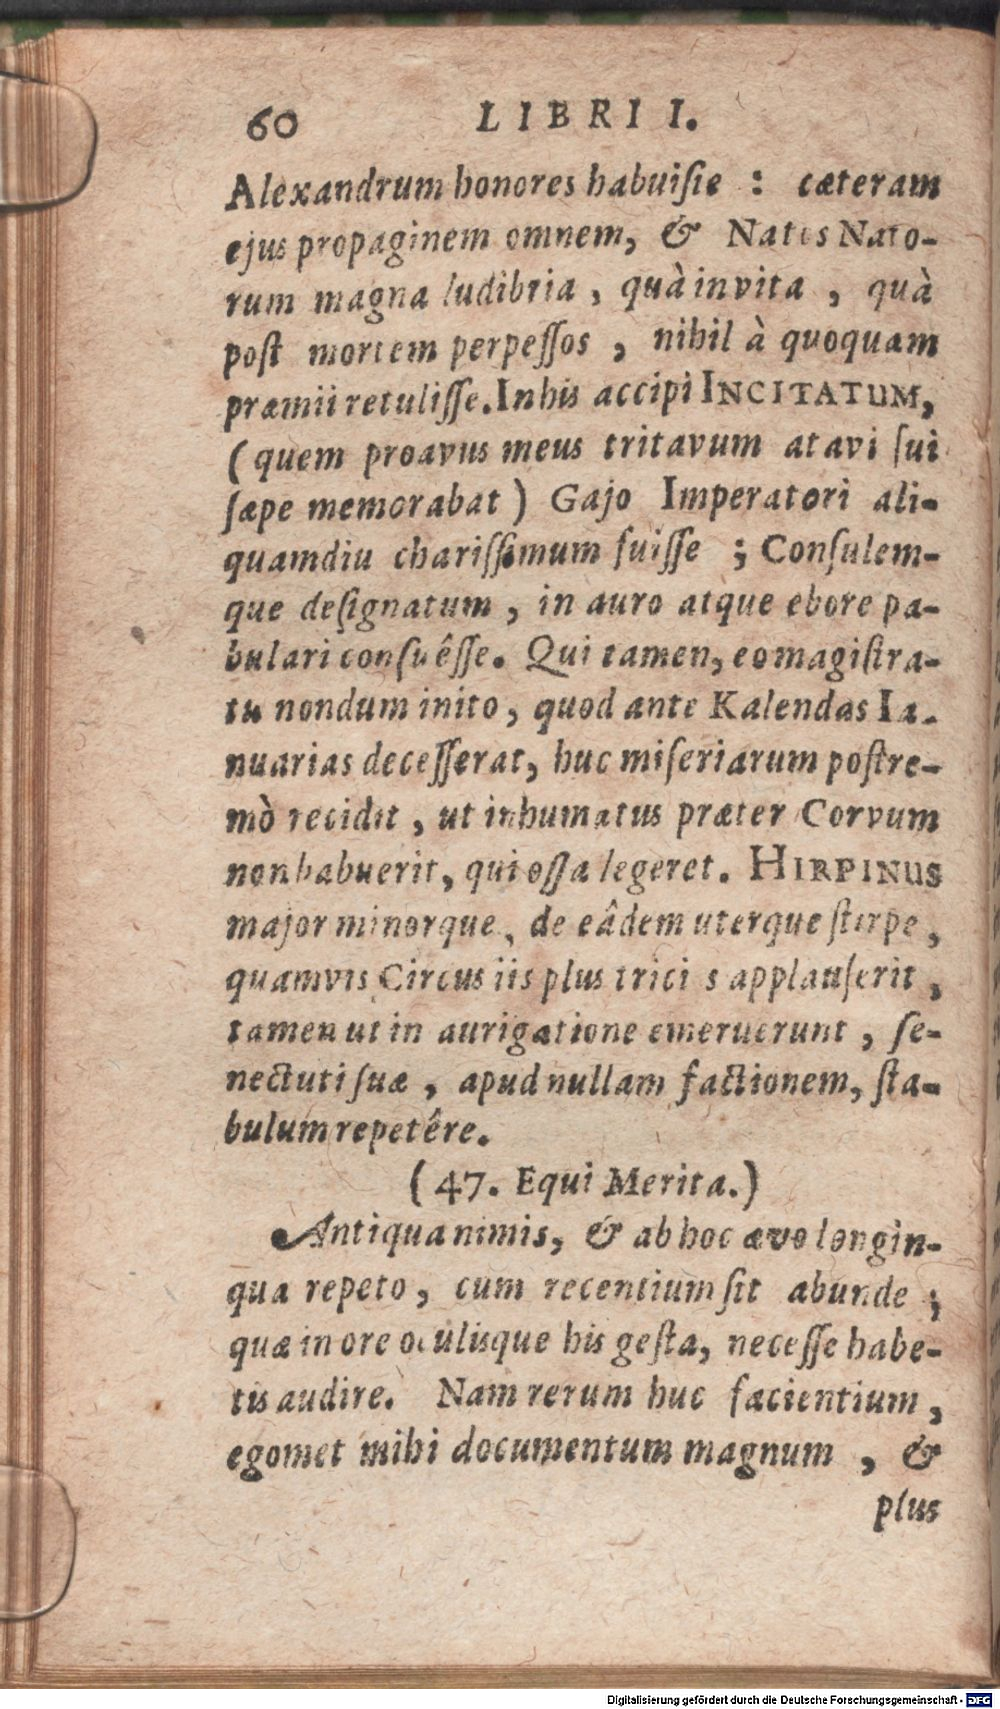 60 LIBRI I.
Alexandrum honores habuisse : cæteram
ejus propaginem omnem, & Natos Nato-
rum magna ludibria, quà in vita, quà
post mortem perpessos, nihil à quoquam
præmii retulisse. In his accipi INCITATUM,
(quem proavus meus tritavum atavi sui
sæpe memorabat) Gajo Imperatori ali-
quamdiu charissimum fuisse ; Consulem-
que designatum, in auro atque ebore pa-
bulari consuêsse. Qui tamen, eo magistra-
tu nondum inito, quod ante Kalendas Ia-
nuarias decesserat, huc miseriarum postre-
mò recidit, ut inhumatus præter Corvum
non habuerit, qui ossa legeret. HIRPINUS
major minorque, de eâdem uterque stirpe,
quamvis Circus iis plus trici s applauserit,
tamen ut in aurigatione emeruerunt, se-
nectuti suæ, apud nullam factionem, sta-
bulum repetêre.
(47. Equi Merita.)
Antiqua nimis, & ab hoc ævo longin-
qua repeto, cum recentium sit abunde ;
quæ in ore oculisque his gesta, necesse habe-
tis audire. Nam rerum huc facientium,
egomet mihi documentum magnum, &
plus
Digitalisierung gefördert durch die Deutsche Forschungsgemeinschaft - DFG